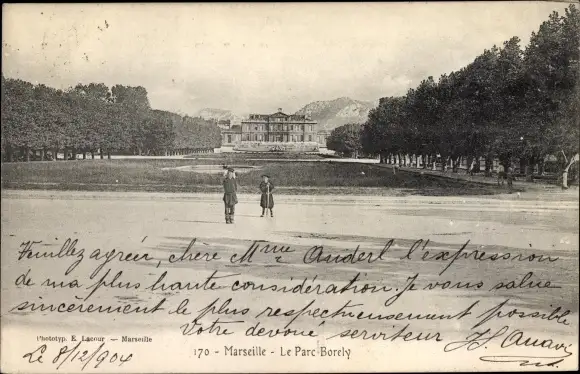 Veuillez agréer, chère Mme Anderl l'expression
de ma plus haute considération. Je vous salue
sincèrement le plus respectueusement possible
Votre devoué serviteur
Phototyp. E. Lacour — Marseille
170 - Marseille - Le Parc Borely
Le 8/12 904